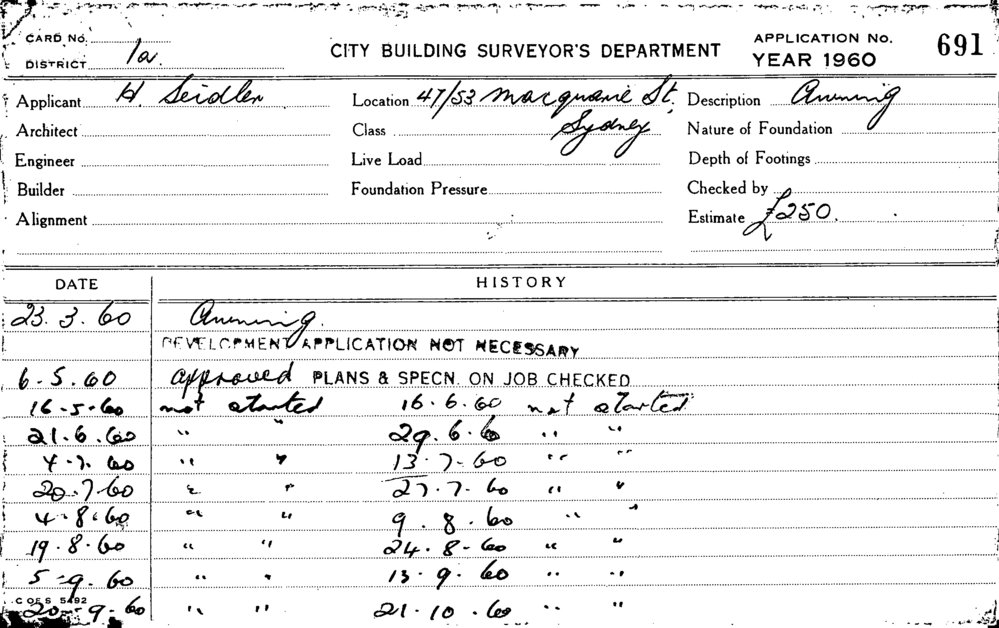 CARD No.
DISTRICT 1a.
CITY BUILDING SURVEYOR'S DEPARTMENT
APPLICATION No. 691
YEAR 1960
Applicant H. Seidler Location 47/53 Macquarie St, Description Awning
Architect Class Sydney Nature of Foundation
Engineer Live Load Depth of Footings
Builder Foundation Pressure Checked by
Alignment Estimate £250.
DATE HISTORY
23. 3. 60 Awning.
DEVELOPMENT APPLICATION NOT NECESSARY
6-5.60 approved PLANS & SPECN. ON JOB CHECKED
16-5-60 not started 16.6.60 not started
21.6.60 " " 29.6.60 " "
4-7.60 " " 13-7-60 " "
20.7.60 " " 27.7.60 " "
4.8.60 " " 9.8.60 " "
19.8.60 " " 24.8-60 " "
5-9.60 " " 13.9.60 " "
COES 5492
20-9-60 " " 21.10.60 " "